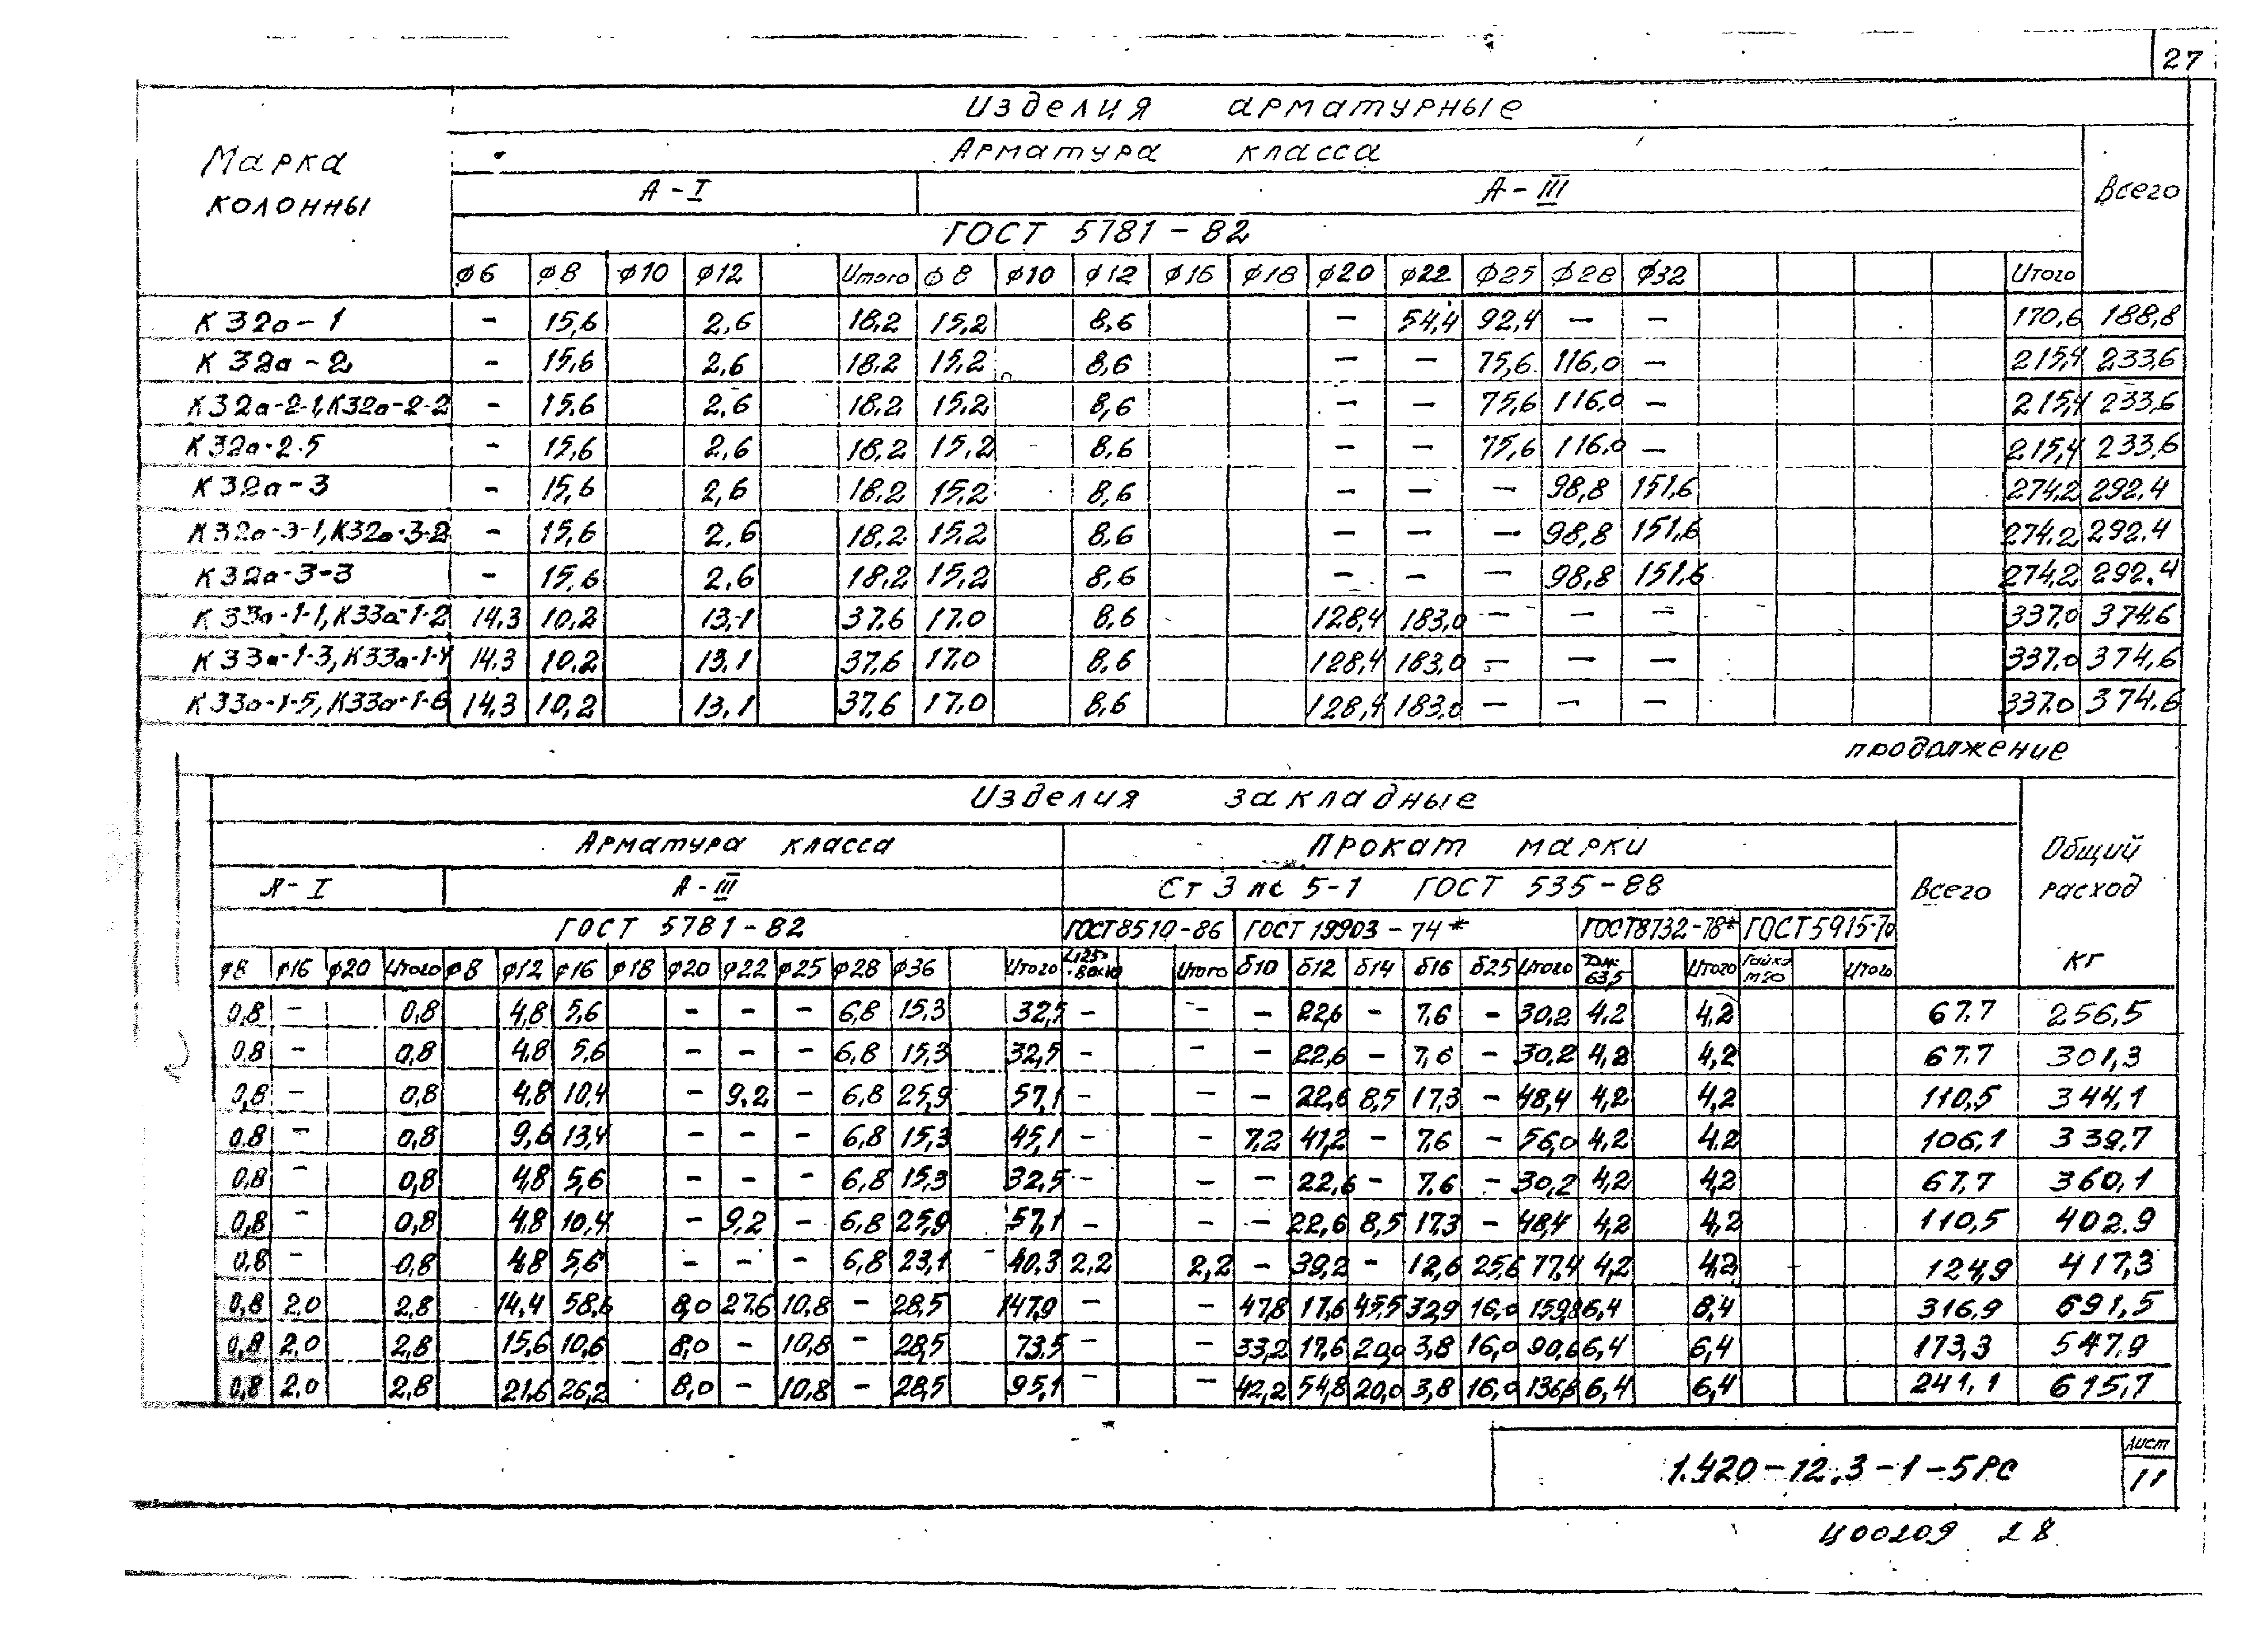 27
Изделия арматурные
Марка колонны
Арматура класса
Всего
А-I А-III
ГОСТ 5781-82
ф6 ф8 ф10 ф12 Итого ф8 ф10 ф12 ф16 ф18 ф20 ф22 ф25 ф28 ф32 Итого
К32а-1 - 15,6 2,6 18,2 15,2 8,6 - 54,4 92,4 - - 170,6 188,8
К32а-2 - 15,6 2,6 18,2 15,2 8,6 - - 75,6 116,0 - 215,4 233,6
К32а-2-1, К32а-2-2 - 15,6 2,6 18,2 15,2 8,6 - - 75,6 116,0 - 215,4 233,6
К32а-2-5 - 15,6 2,6 18,2 15,2 8,6 - - 75,6 116,0 - 215,4 233,6
К32а-3 - 15,6 2,6 18,2 15,2 8,6 - - - 98,8 151,6 274,2 292,4
К32а-3-1, К32а-3-2 - 15,6 2,6 18,2 15,2 8,6 - - - 98,8 151,6 274,2 292,4
К32а-3-3 - 15,6 2,6 18,2 15,2 8,6 - - - 98,8 151,6 274,2 292,4
К33а-1-1, К33а-1-2 14,3 10,2 13,1 37,6 17,0 8,6 128,4 183,0 - - - 337,0 374,6
К33а-1-3, К33а-1-4 14,3 10,2 13,1 37,6 17,0 8,6 128,4 183,0 - - - 337,0 374,6
К33а-1-5, К33а-1-6 14,3 10,2 13,1 37,6 17,0 8,6 128,4 183,0 - - - 337,0 374,6
продолжение
Изделия закладные
Арматура класса Прокат марки Общий
А-I А-III Ст 3 пс 5-1 ГОСТ 535-88 Всего расход
ГОСТ 5781-82 ГОСТ 8510-86 ГОСТ 19903-74* ГОСТ 8732-78* ГОСТ 5915-70
ф8 ф16 ф20 Итого ф8 ф12 ф16 ф18 ф20 ф22 ф25 ф28 ф36 Итого Итого δ10 δ12 δ14 δ16 δ25 Итого 63,5 Итого Гайка М20 Итого кг
0,8 - 0,8 4,8 5,6 - - - 6,8 15,3 32,5 - - - 22,6 - 7,6 - 30,2 4,2 4,2 67,7 256,5
0,8 - 0,8 4,8 5,6 - - - 6,8 15,3 32,5 - - - 22,6 - 7,6 - 30,2 4,2 4,2 67,7 301,3
0,8 - 0,8 4,8 10,4 - 9,2 - 6,8 25,9 57,1 - - - 22,6 8,5 17,3 - 48,4 4,2 4,2 110,5 344,1
0,8 - 0,8 9,6 13,4 - - - 6,8 15,3 45,1 - - 7,2 41,2 - 7,6 - 56,0 4,2 4,2 106,1 339,7
0,8 - 0,8 4,8 5,6 - - - 6,8 15,3 32,5 - - - 22,6 - 7,6 - 30,2 4,2 4,2 67,7 360,1
0,8 - 0,8 4,8 10,4 - 9,2 - 6,8 25,9 57,1 - - - 22,6 8,5 17,3 - 48,4 4,2 4,2 110,5 402,9
0,8 - 0,8 4,8 5,6 - - - 6,8 23,1 40,3 2,2 2,2 - 39,2 - 12,6 25,6 77,4 4,2 4,2 124,9 417,3
0,8 2,0 2,8 14,4 58,6 8,0 27,6 10,8 - 28,5 147,9 - - 47,8 17,6 45,5 32,9 16,0 159,8 6,4 6,4 316,9 691,5
0,8 2,0 2,8 15,6 10,6 8,0 - 10,8 - 28,5 73,5 - - 33,2 17,6 20,0 3,8 16,0 90,6 6,4 6,4 173,3 547,9
0,8 2,0 2,8 21,6 26,2 8,0 - 10,8 - 28,5 95,1 - - 42,2 54,8 20,0 3,8 16,0 136,8 6,4 6,4 241,1 615,7
1.420-12.3-1-5РС
Лист
11
Ц00209 28